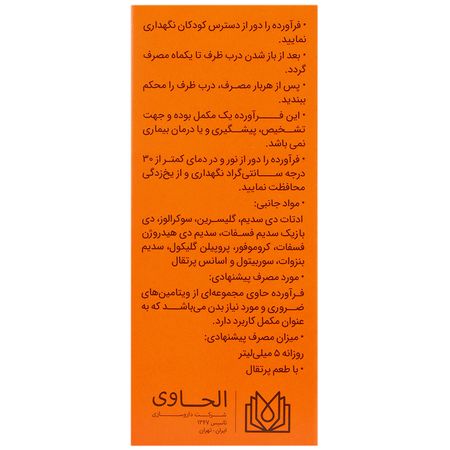 • فرآورده را دور از دسترس کودکان نگهداری
نمایید.
• بعد از باز شدن درب ظرف تا یکماه مصرف
گردد.
• پس از هربار مصرف، درب ظرف را محکم
ببندید.
• این فرآورده یک مکمل بوده و جهت
تشخیص، پیشگیری و یا درمان بیماری
نمی باشد.
• فرآورده را دور از نور و در دمای کمتر از ۳۰
درجه سانتی‌گراد نگهداری و از یخ‌زدگی
محافظت نمایید.
• مواد جانبی:
ادتات دی سدیم، گلیسرین، سوکرالوز، دی
بازیک سدیم فسفات، سدیم دی هیدروژن
فسفات، کروموفور، پروپیلن گلیکول، سدیم
بنزوات، سوربیتول و اسانس پرتقال
• مورد مصرف پیشنهادی:
فرآورده حاوی مجموعه‌ای از ویتامین‌های
ضروری و مورد نیاز بدن می‌باشد که به
عنوان مکمل کاربرد دارد.
• میزان مصرف پیشنهادی:
روزانه ۵ میلی‌لیتر
• با طعم پرتقال
الحاوی
شرکت داروسازی
تاسیس ۱۳۴۷
ایران - تهران